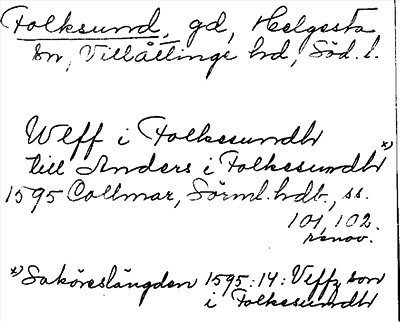 Folksund, gd, Helgesta
sn, Villåttinge hd, Söd. l.
Ulff i Folkesundh
till Anders i Folkesundh *)
1595 Collmar, Sörml. hdb., ss.
101, 102.
renov.
*) Saköreslängden 1595:14: Veffz son
i Folkesundh